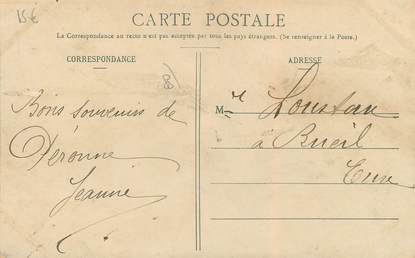 15€
CARTE POSTALE
La Correspondance au recto n'est pas acceptée par tous les pays étrangers. (Se renseigner à la Poste.)
CORRESPONDANCE
ADRESSE
Bons souvenirs de
Péronne
Jeanne
M elle Loustau
à Bueil
Eure